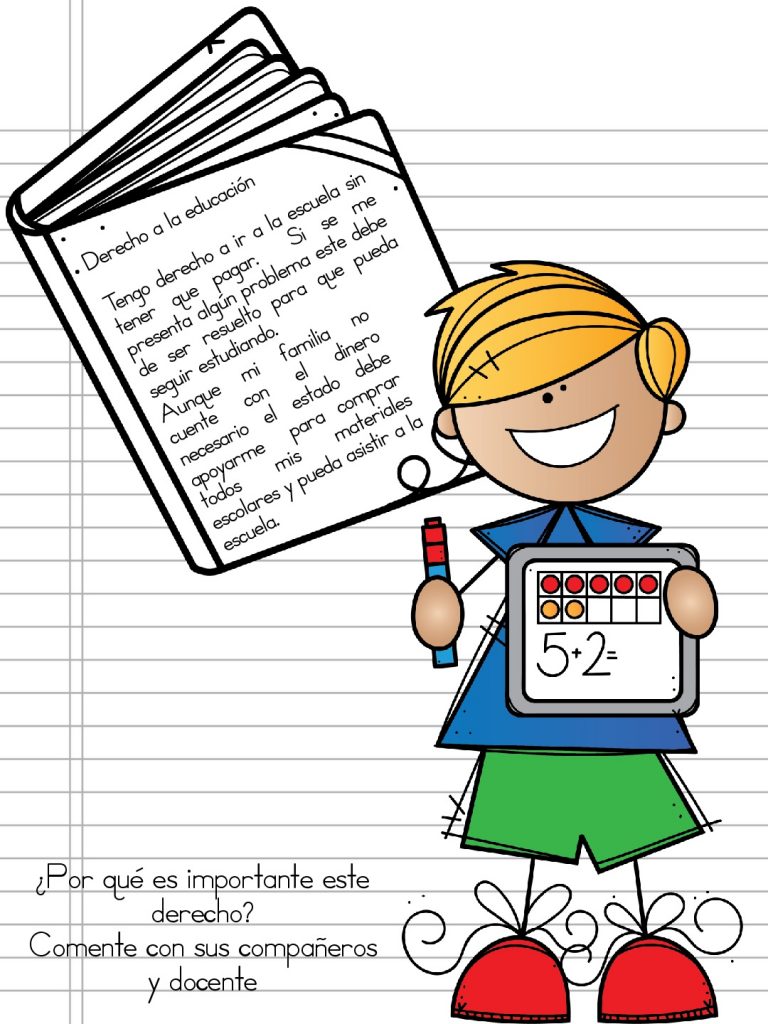 Derecho a la educación
Tengo derecho a ir a la escuela sin
tener que pagar. Si se me
presenta algún problema este debe
de ser resuelto para que pueda
seguir estudiando.
Aunque mi familia no
cuente con el dinero
necesario el estado debe
apoyarme para comprar
todos mis materiales
escolares y pueda asistir a la
escuela.
5+2=
¿Por qué es importante este
derecho?
Comente con sus compañeros
y docente